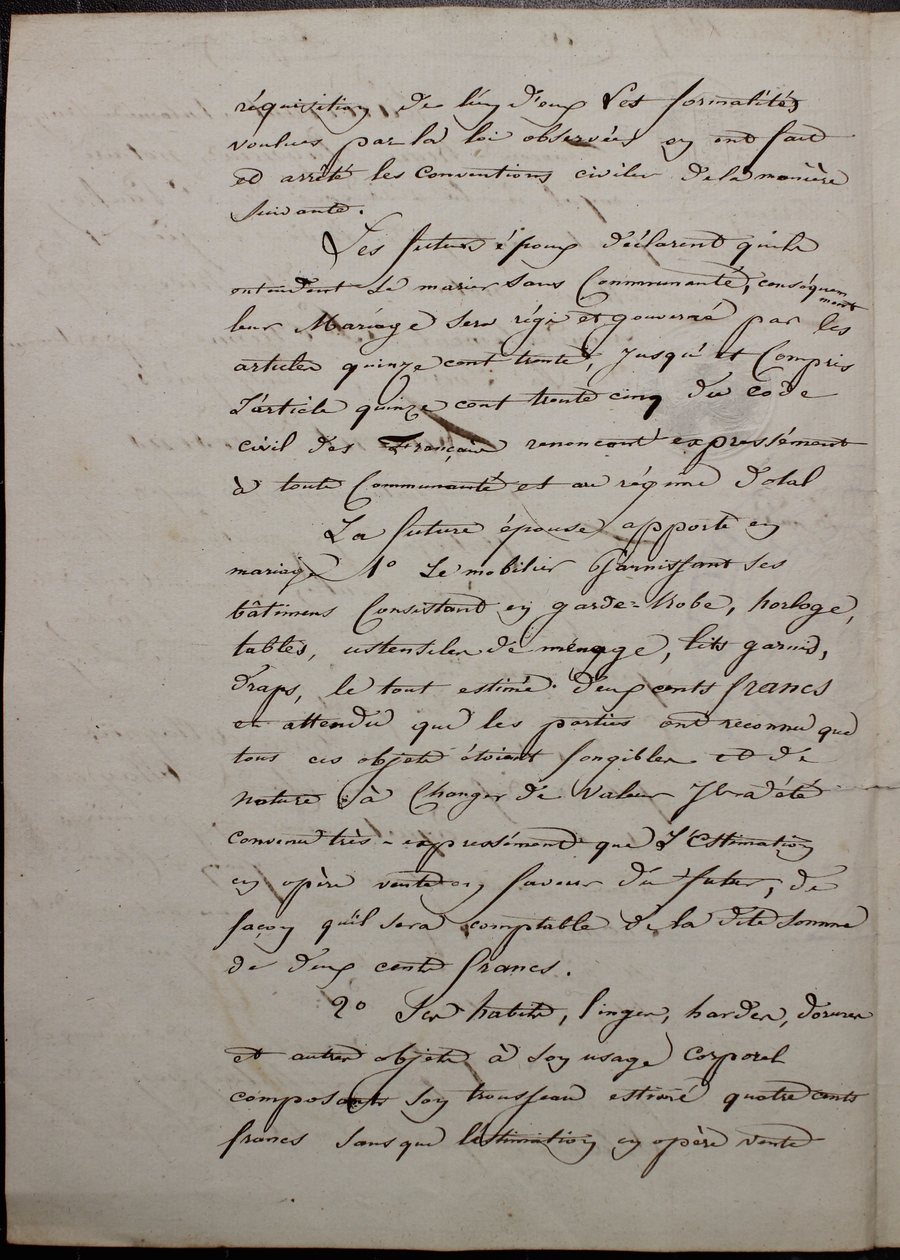 réquisition de l'un d'eux Les formalités
voulues par la loi observées en ont fait
et arrêté les conventions civiles de la manière
suivante.
Les futurs époux déclarent qu'ils
entendent se marier sans Communauté, conséquemment
leur Mariage sera régi et gouverné par les
articles quinze cent trente, jusqu'à et Compris
L'article quinze cent trente cinq du code
civil des Français renonçant expressément
à toute Communauté et au régime dotal
La future épouse apporte en
mariage 1o Le mobilier Garnissant ses
bâtimens Consistant en garde-robe, horloge,
tables, ustensiles de ménage, lits garnis,
draps, le tout estimé deux cents francs
et attendu que les parties ont reconnu que
tous ces objets étoient fongibles et de
nature à Changer de valeur Il a été
convenu très-expressément que L'Estimation
en opère vente en faveur du futur, de
façon qu'il sera comptable de la dite somme
de deux cents francs.
2o Ses habits, linges, hardes, dorures
et autres objets à son usage Corporel
composants son trousseau estimé quatre cents
francs sans que l'estimation en opère vente